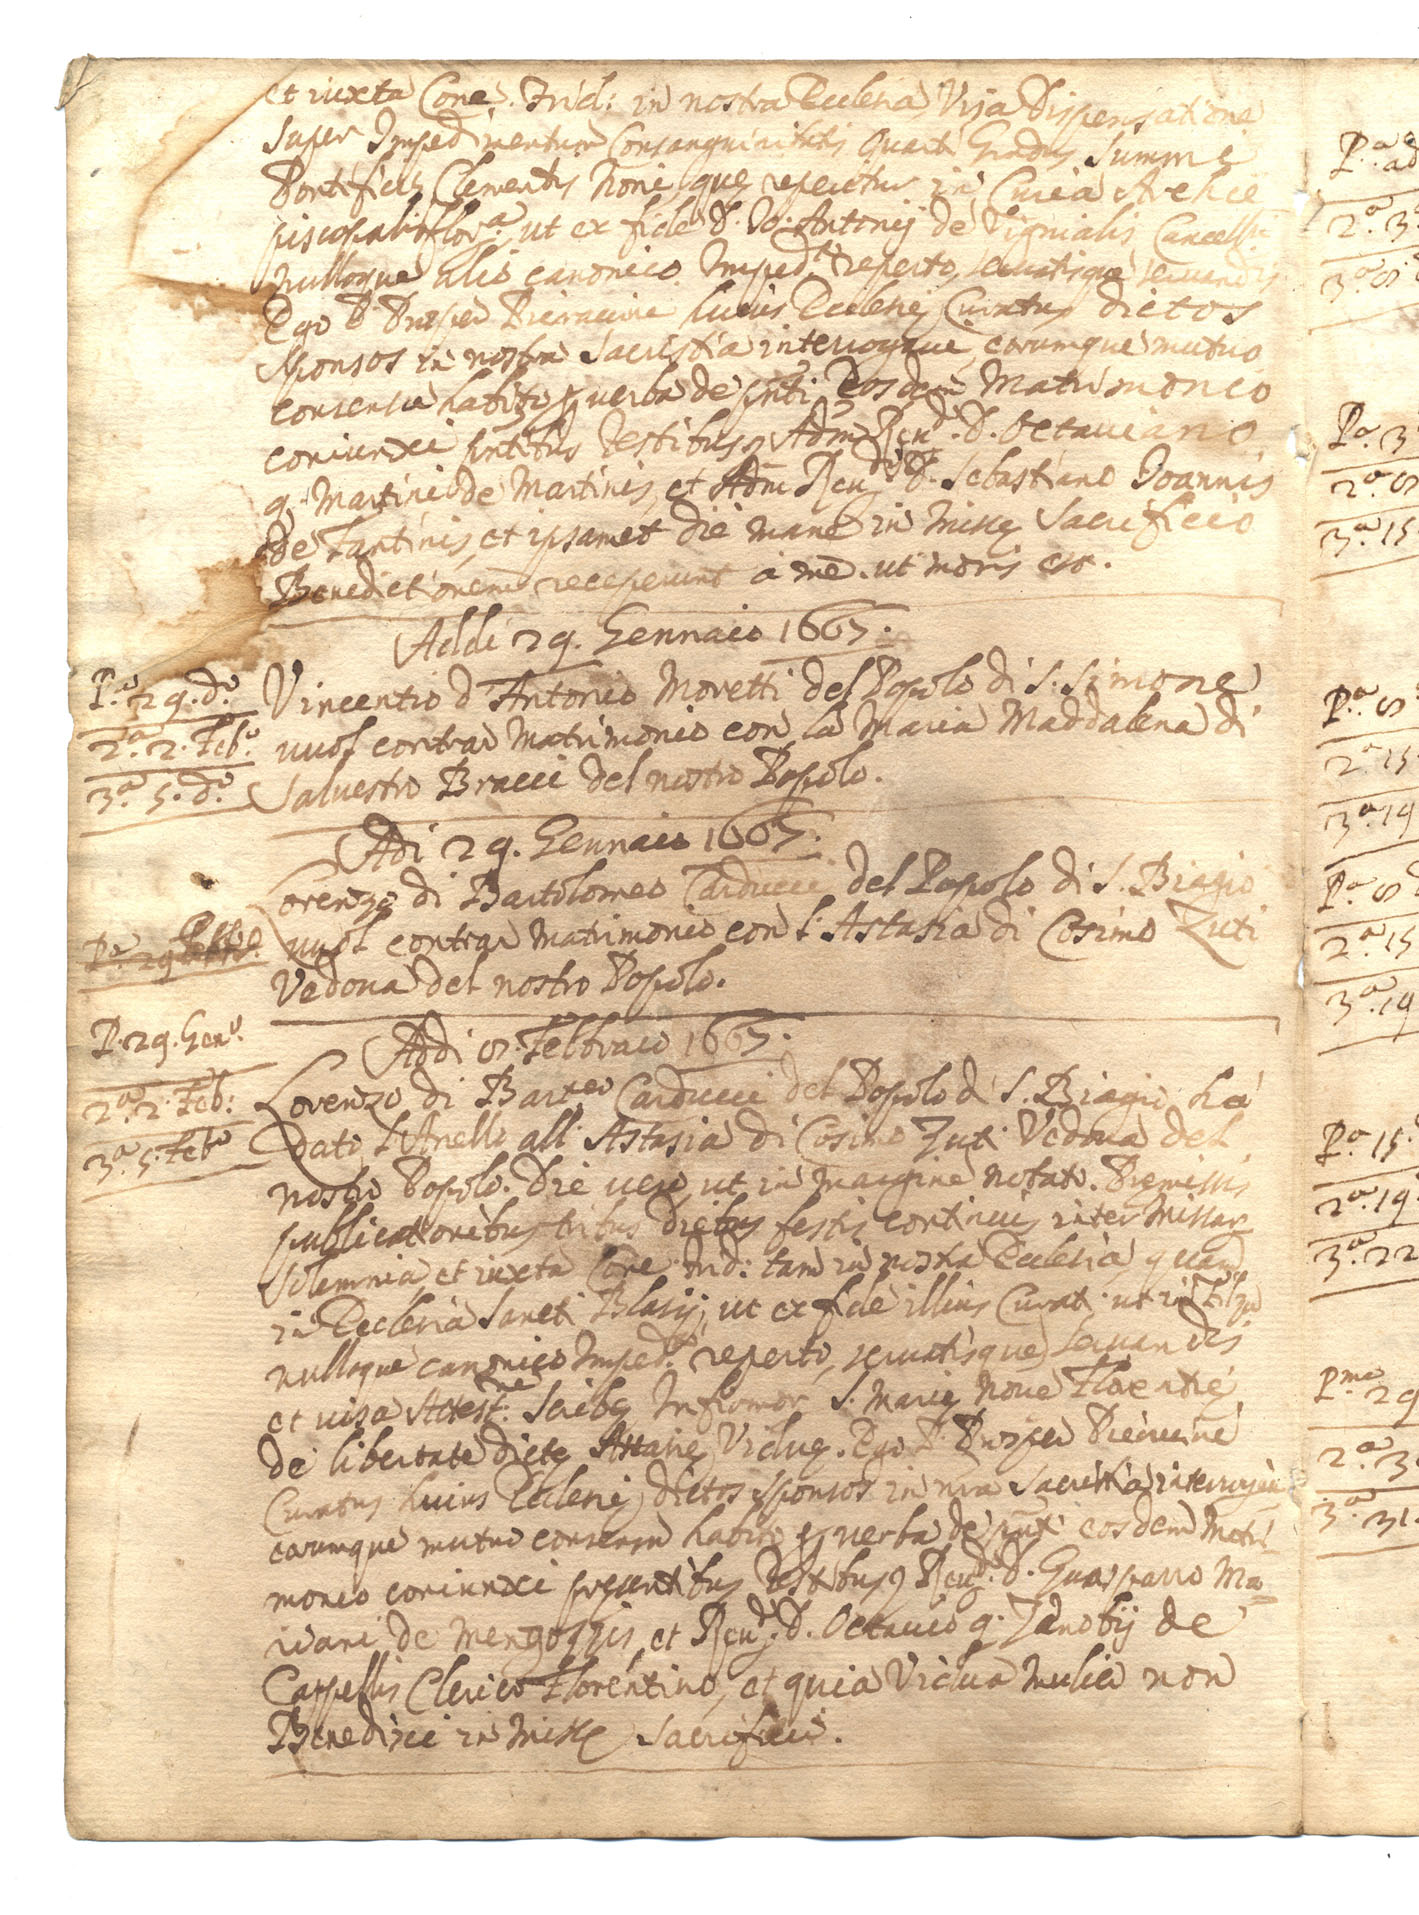 et iuxta Conc. Trid: in nostra Ecclesia, Visa Dispensatione
super Impedimentum Consanguinitatis Quarti Gradus Summi
Pontificis Clementis Noni, quę reperitur in Curia Archie
piscopali flor.a ut ex fide D. Io: Antonij de Vignialis Cancell.
nulloque alio canonico Imped.to reperto, seruatisque seruandis
Ego P. Prosper Pieraccini huius Ecclesię Curatus dictos
sponsos in nostra sacristia interrogaui, eorumque mutuo
consensu habito p uerba de pnti eosdem Matrimonio
coniunxi pntibus testibus Adm Reud. D. Octauiano
q. Martini de Martinis, et Adm Reud. D. Sebastiano Joannis
de Fantinis, et ipsamet die mane in Missę Sacrificio
Benedictionem receperunt a me. ut moris est.
Addi 29. Gennaio 1667.
P.a 29. d.o
2.a 2. Feb.o
3.a 5. d.o
Vincentio d'Antonio Moretti del Popolo di S. Simone
uuol contrar Matrimonio con la Maria Maddalena di
Saluestro Bracci del nostro Popolo.
Adi 29. Gennaio 1667.
Lorenzo di Bartolomeo Carducci del Popolo di S. Biagio
uuol contrar Matrimonio con l'Astasia di Cosimo Zuti
Vedoua del nostro Popolo.
P. 29. Gen.o
2.a 2. Feb:
3.a 5. Feb.o
Addi 8. Febbraio 1667.
Lorenzo di Bart.eo Carducci del Popolo di S. Biagio hà
dato l'Anello all'Astasia di Cosimo Zuti Vedoua del
nostro Popolo. Die uero ut in margine notato. Premissis
publicationibus tribus diebus festis continuis inter Missar
solemnia, et iuxta Conc. Trid: tam in nostra Ecclesia, quam
in Ecclesia Sancti Blasij, ut ex fide illius Curati ut in filza
nulloque canonico Imped.to reperto, seruatisque seruandis
et uisa Attest.ne Scribę Infirmor S. Marię Noue Florentię
de libertate dictę Astasię Viduę. Ego P. Prosper Pieraccini
Curatus huius Ecclesię dictos sponsos in nra Sacristia interrogaui
eorumque mutuo consensu habito p uerba de pnti eosdem Matri-
monio coniunxi presentibus testibus Reud. D. Guasparro Ma-
riani de Mengozzis, et Reud. D. Octauio q. Zanobij de
Cappellis Clerico Florentino, et quia Vidua mulier non
Benedixi in Missę Sacrificio.